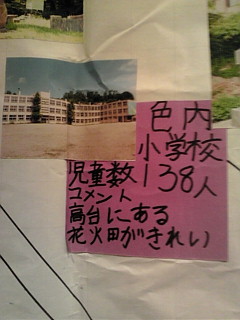 色内
小学校
児童数138人
コメント
高台にある
花火田がきれい